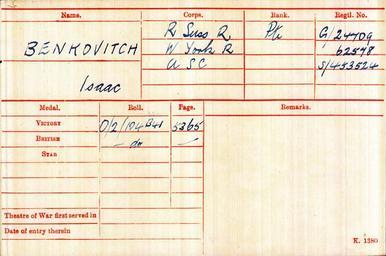 Name. Corps. Rank. Regtl. No.
BENKOVITCH R Suss R. Pte G/24709
W York R 62578
Isaac A S C S/453524
Medal. Roll. Page. Remarks.
Victory O/2/104 B41 5365
British — do —
Star
Theatre of War first served in
Date of entry therein
K. 1380